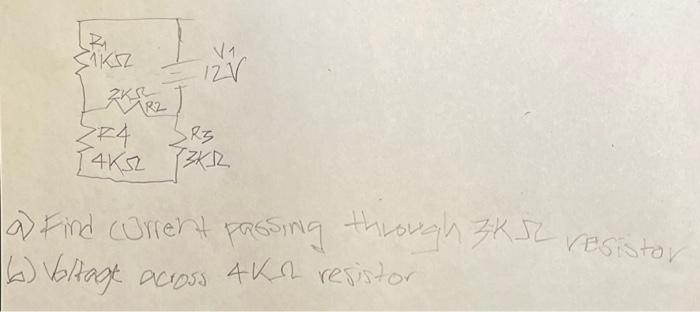 R1
1KΩ
V1
12V
2KΩ
R2
R4
4KΩ
R3
3KΩ
a) Find current passing through 3KΩ resistor
b) Voltage across 4KΩ resistor